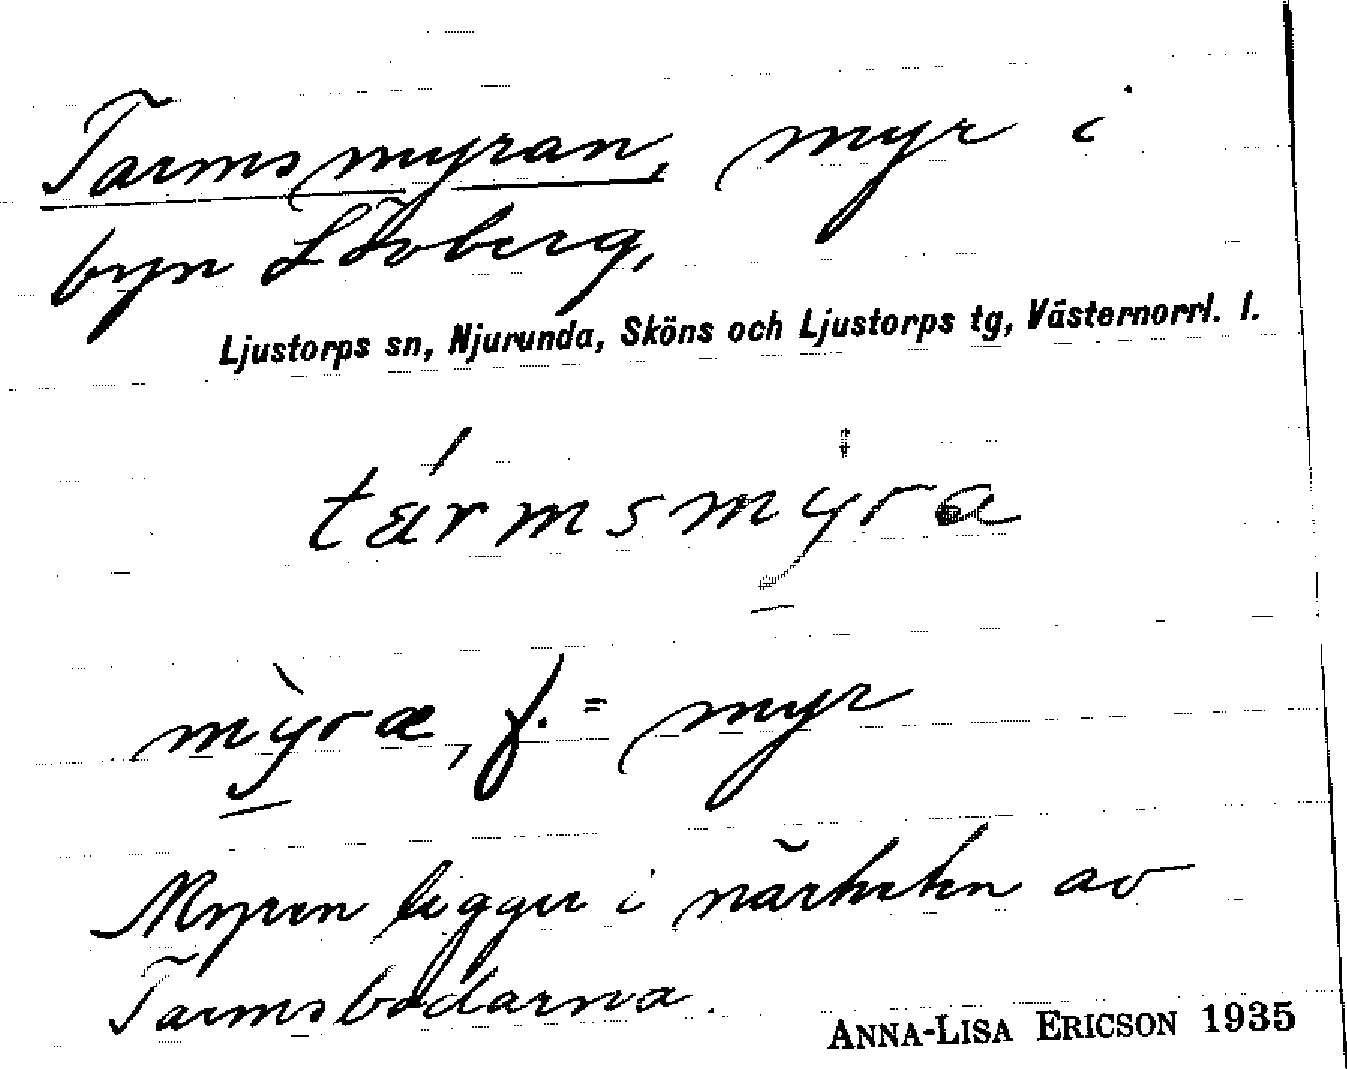 Tarmsmyran, myr i
byn Lövberg,
Ljustorps sn, Njurunda, Sköns och Ljustorps tg, Västernorrl. l.
tármsmyra
mỳræ, f. = myr
Myren ligger i närheten av
Tarmsbodarna.
ANNA-LISA ERICSON 1935